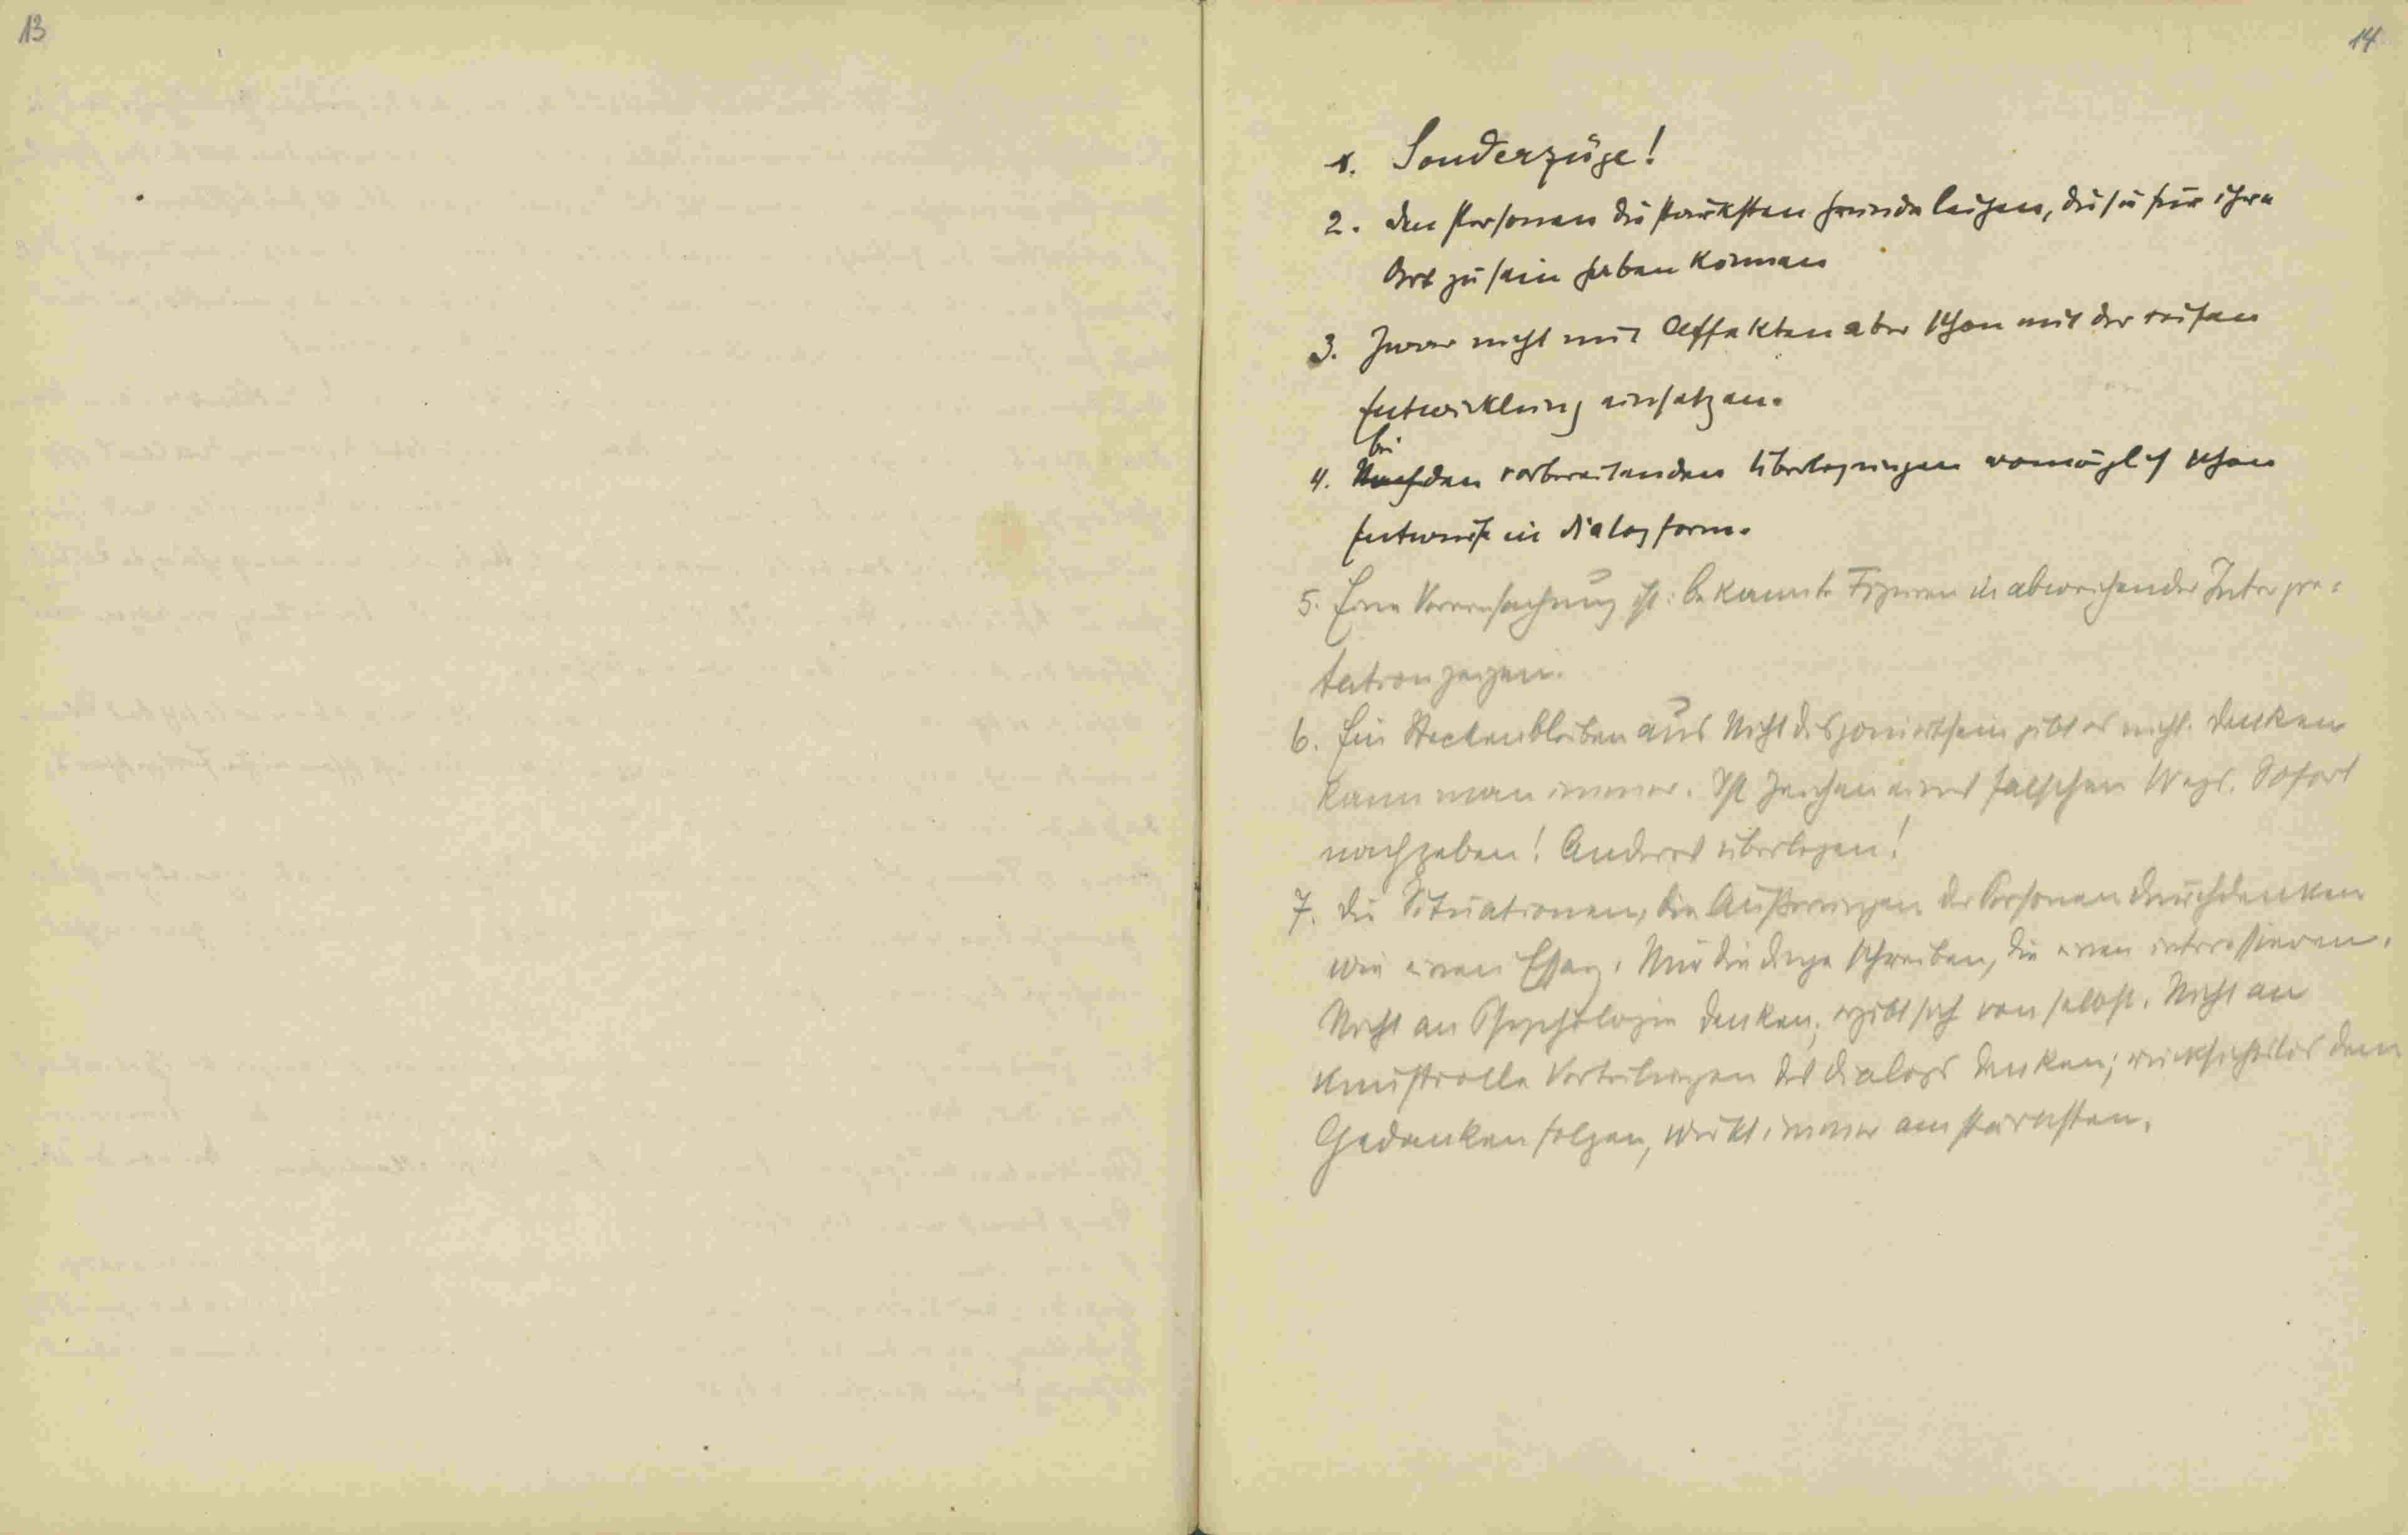 13
14
1. Sonderzüge!
2. Den Personen die stärksten Gründe leihen, die sie für ihre
Art zu sein haben können
3. Zwar nicht mit Affekten aber schon mit der reifen
Entwicklung einsetzen.
bei
4. Nach den vorbereitenden Überlegungen womöglich schon
Entwürfe in Dialogform.
5. Eine Verursachung ist: bekannte Figuren in abweichender Interpre=
tation zeigen.
6. Ein Steckenbleiben aus Nichtdisponiertsein gibt es nicht. Denken
kann man immer. Ist Zeichen eines falschen Wegs. Sofort
nachgeben! Anderes überlegen!
7. Die Situationen, die Äußerungen der Personen durchdenken
wie einen Essay. Nur die Dinge schreiben, die einen interessieren.
Nicht an Psychologie denken, ergibt sich von selbst. Nicht an
kunstvolle Verteilungen des Dialogs denken; rücksichtslos dem
Gedanken folgen, wirkt immer am stärksten.